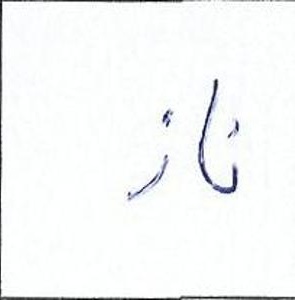 ناز